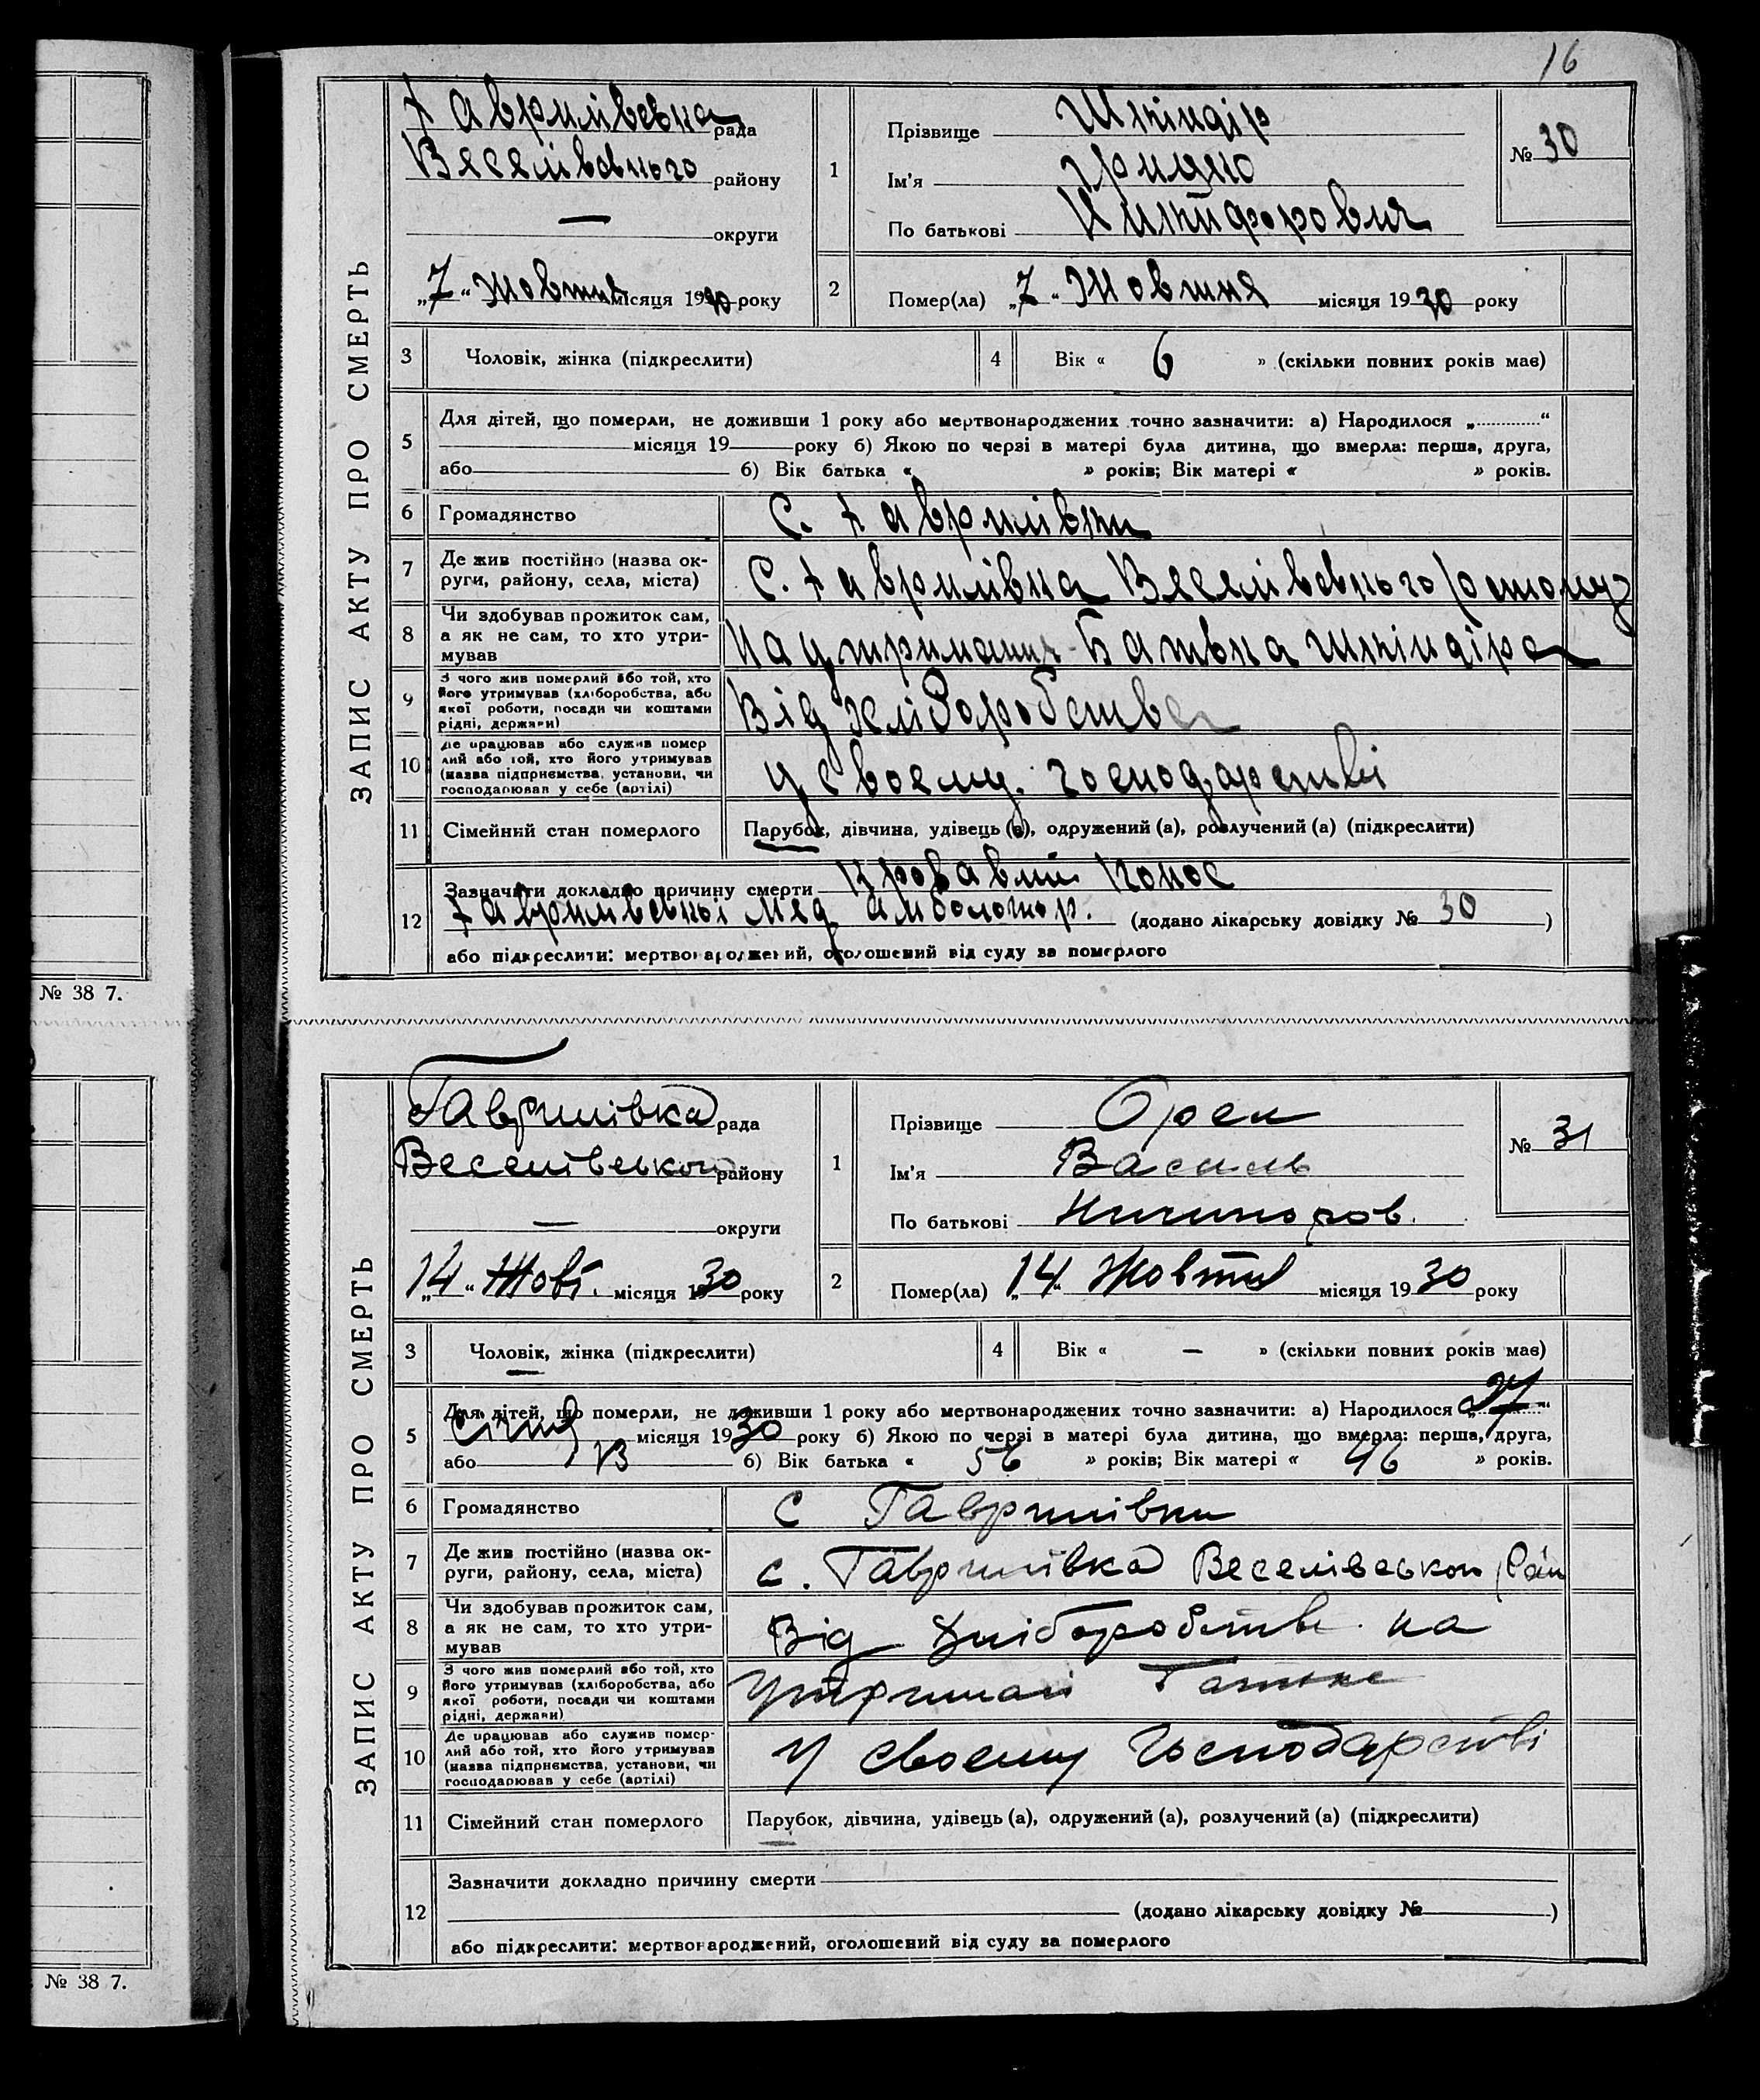 16
ЗАПИС АКТУ ПРО СМЕРТЬ
Гаврилівська рада
Веселівського району
— округи
„7“ Жовтня місяця 1930 року
1
Прізвище Шкіндір
Ім'я Грицко
По батькові Никифорович
№ 30
2
Помер(ла) „7“ Жовтня місяця 1930 року
3 Чоловік, жінка (підкреслити)
4 Вік « 6 » (скільки повних років має)
5 Для дітей, що померли, не доживши 1 року або мертвонароджених точно зазначити: а) Народилося „ “
місяця 19 року б) Якою по черзі в матері була дитина, що вмерла: перша, друга,
або б) Вік батька « » років; Вік матері « » років.
6 Громадянство С. Гаврилівки
7 Де жив постійно (назва ок-
руги, району, села, міста) С. Гаврилівка Веселівського району
8 Чи здобував прожиток сам,
а як не сам, то хто утри-
мував На утриманні Батька Шкіндіра
9 З чого жив померлий або той, хто
його утримував (хліборобства, або
якої роботи, посади чи коштами
рідні, держави) Від хліборобства
10 Де працював або служив помер
лий або той, хто його утримував
(назва підприємства, установи, чи
господарював у себе (артілі) у своєму господарстві
11 Сімейний стан померлого Парубок, дівчина, удівець (а), одружений (а), розлучений (а) (підкреслити)
12 Зазначити докладно причину смерти Кровавий Понос
Гаврилівської мед (додано лікарську довідку № 30 )
або підкреслити: мертвонароджений, оголошений від суду за померлого
№ 38 7.
ЗАПИС АКТУ ПРО СМЕРТЬ
Гаврилівка рада
Веселівського району
— округи
„14“ Жовт. місяця 1930 року
1
Прізвище Орел
Ім'я Василь
По батькові Ничипоров.
№ 31
2
Помер(ла) „14“ Жовтня місяця 1930 року
3 Чоловік, жінка (підкреслити)
4 Вік « — » (скільки повних років має)
5 Для дітей, що померли, не доживши 1 року або мертвонароджених точно зазначити: а) Народилося „27“
Січня місяця 1930 року б) Якою по черзі в матері була дитина, що вмерла: перша, друга,
або 13 б) Вік батька « 56 » років; Вік матері « 46 » років.
6 Громадянство С Гаврилівки
7 Де жив постійно (назва ок-
руги, району, села, міста) с. Гаврилівка Веселівського Рай
8 Чи здобував прожиток сам,
а як не сам, то хто утри-
мував Від Хліборобства на
9 З чого жив померлий або той, хто
його утримував (хліборобства, або
якої роботи, посади чи коштами
рідні, держави) Утримані Батька
10 Де працював або служив помер-
лий або той, хто його утримував
(назва підприємства, установи, чи
господарював у себе (артілі) У своєму Господарстві
11 Сімейний стан померлого Парубок, дівчина, удівець (а), одружений (а), розлучений (а) (підкреслити)
12 Зазначити докладно причину смерти
(додано лікарську довідку № )
або підкреслити: мертвонароджений, оголошений від суду за померлого
№ 38 7.